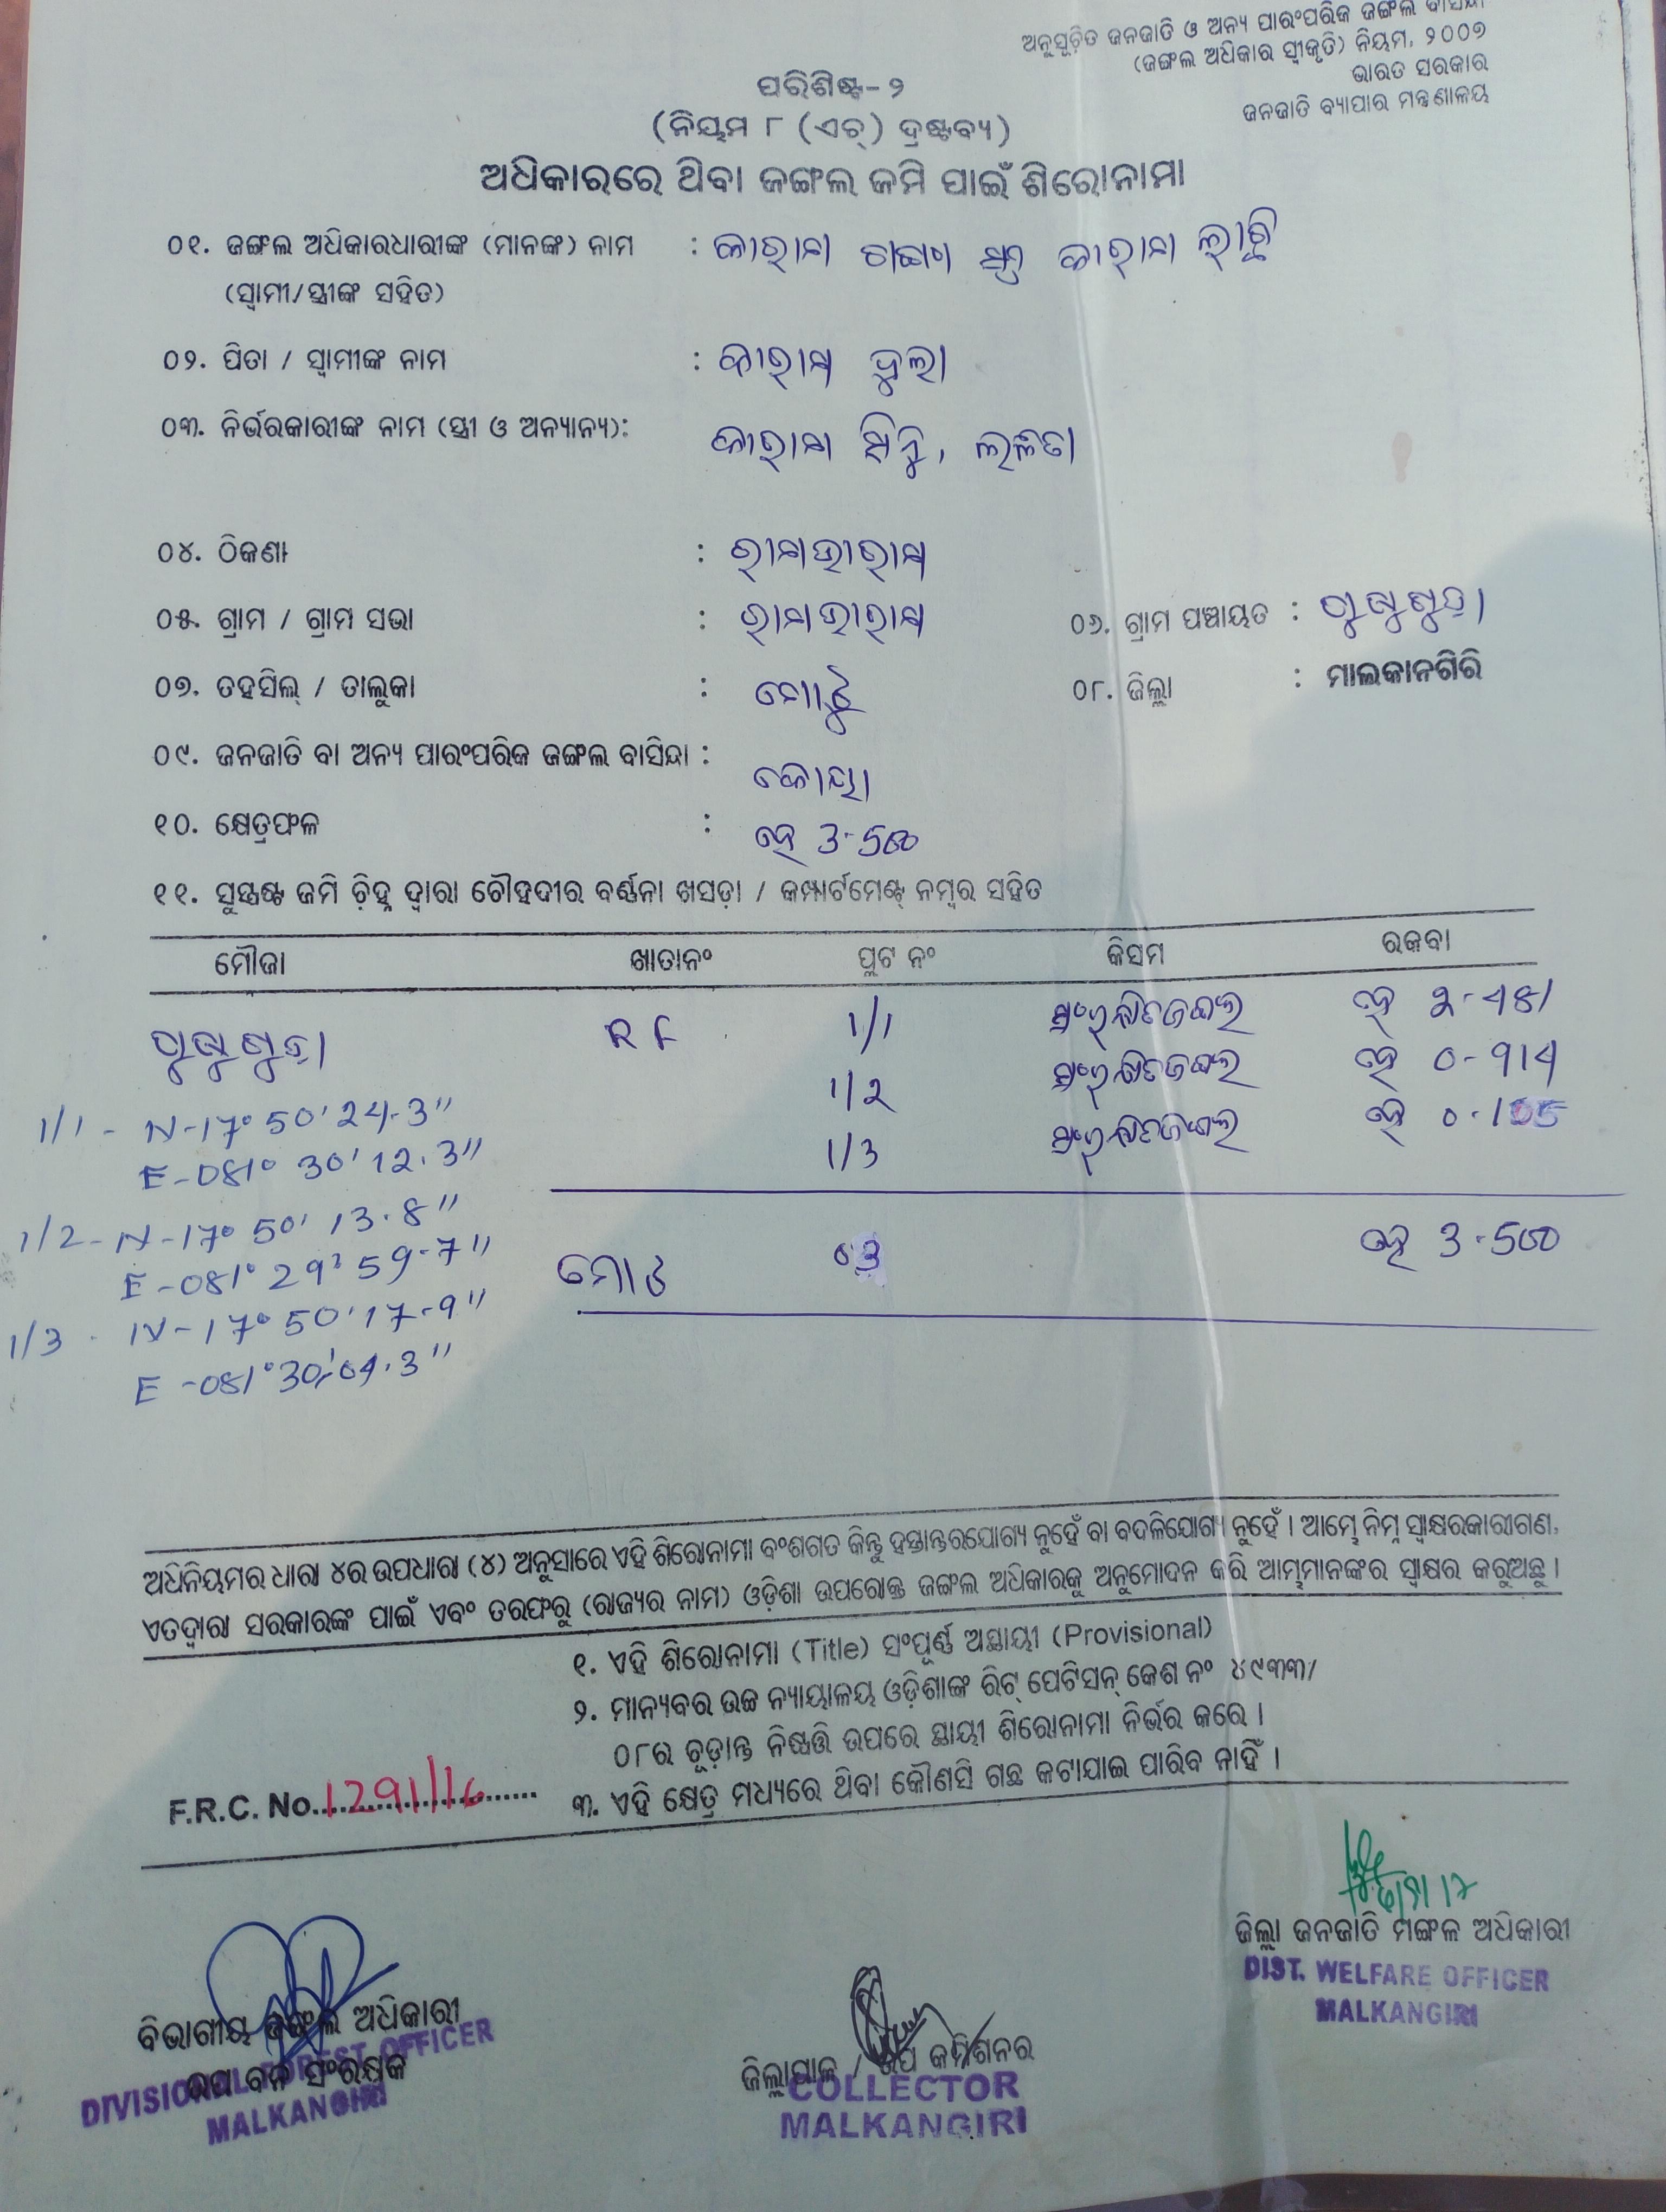 ଅନୁସୂଚିତ ଜନଜାତି ଓ ଅନ୍ୟ ପାରଂପରିକ ଜଙ୍ଗଲ ବାସିନ୍ଦା
(ଜଙ୍ଗଲ ଅଧିକାର ସ୍ୱୀକୃତି) ନିୟମ, ୨୦୦୭
ଭାରତ ସରକାର
ଜନଜାତି ବ୍ୟାପାର ମନ୍ତ୍ରଣାଳୟ
ପରିଶିଷ୍ଟ-୨
(ନିୟମ ୮ (ଏଚ୍) ଦ୍ରଷ୍ଟବ୍ୟ)
ଅଧିକାରରେ ଥିବା ଜଙ୍ଗଲ ଜମି ପାଇଁ ଶିରୋନାମା
୦୧. ଜଙ୍ଗଲ ଅଧିକାରଧାରୀଙ୍କ (ମାନଙ୍କ) ନାମ :
(ସ୍ୱାମୀ/ସ୍ତ୍ରୀଙ୍କ ସହିତ)
୦୨. ପିତା / ସ୍ୱାମୀଙ୍କ ନାମ :
୦୩. ନିର୍ଭରକାରୀଙ୍କ ନାମ (ସ୍ତ୍ରୀ ଓ ଅନ୍ୟାନ୍ୟ):
୦୪. ଠିକଣା :
୦୫. ଗ୍ରାମ / ଗ୍ରାମ ସଭା : ୦୬. ଗ୍ରାମ ପଞ୍ଚାୟତ :
୦୭. ତହସିଲ୍ / ତାଲୁକା : ମୋଟୁ ୦୮. ଜିଲ୍ଲା : ମାଲକାନଗିରି
୦୯. ଜନଜାତି ବା ଅନ୍ୟ ପାରଂପରିକ ଜଙ୍ଗଲ ବାସିନ୍ଦା : କୋୟା
୧୦. କ୍ଷେତ୍ରଫଳ : ହେ 3-500
୧୧. ସୁସ୍ପଷ୍ଟ ଜମି ଚିହ୍ନ ଦ୍ୱାରା ଚୌହଦୀର ବର୍ଣ୍ଣନା ଖସଡ଼ା / କମ୍ପାର୍ଟମେଣ୍ଟ୍ ନମ୍ବର ସହିତ
ମୌଜା ଖାତାନଂ ପ୍ଲଟ ନଂ କିସମ ରକବା
RF 1/1 ସଂରକ୍ଷିତଜଙ୍ଗଲ ହେ 2-481
1/2 ସଂରକ୍ଷିତଜଙ୍ଗଲ ହେ 0-914
1/3 ସଂରକ୍ଷିତଜଙ୍ଗଲ ହେ 0-105
1/1 - N-17° 50' 24.3"
E-081° 30' 12.3"
1/2 - N-17° 50' 13.8"
E-081° 29' 59.7"
1/3 - N-17° 50' 17.9"
E-081° 30' 04.3"
ମୋଟ 03 ହେ 3-500
ଅଧିନିୟମର ଧାରା ୪ର ଉପଧାରା (୪) ଅନୁସାରେ ଏହି ଶିରୋନାମା ବଂଶଗତ କିନ୍ତୁ ହସ୍ତାନ୍ତରଯୋଗ୍ୟ ନୁହେଁ ବା ବଦଳିଯୋଗ୍ୟ ନୁହେଁ । ଆମ୍ଭେ ନିମ୍ନ ସ୍ୱାକ୍ଷରକାରୀଗଣ,
ଏତଦ୍ୱାରା ସରକାରଙ୍କ ପାଇଁ ଏବଂ ତରଫରୁ (ରାଜ୍ୟର ନାମ) ଓଡ଼ିଶା ଉପରୋକ୍ତ ଜଙ୍ଗଲ ଅଧିକାରକୁ ଅନୁମୋଦନ କରି ଆମ୍ଭମାନଙ୍କର ସ୍ୱାକ୍ଷର କରୁଅଛୁ ।
୧. ଏହି ଶିରୋନାମା (Title) ସଂପୂର୍ଣ୍ଣ ଅସ୍ଥାୟୀ (Provisional)
୨. ମାନ୍ୟବର ଉଚ୍ଚ ନ୍ୟାୟାଳୟ ଓଡ଼ିଶାଙ୍କ ରିଟ୍ ପେଟିସନ୍ କେଶ ନଂ ୪୯୩୩/
୦୮ର ଚୂଡ଼ାନ୍ତ ନିଷ୍ପତ୍ତି ଉପରେ ସ୍ଥାୟୀ ଶିରୋନାମା ନିର୍ଭର କରେ ।
୩. ଏହି କ୍ଷେତ୍ର ମଧ୍ୟରେ ଥିବା କୌଣସି ଗଛ କଟାଯାଇ ପାରିବ ନାହିଁ ।
F.R.C. No. 1291/16
ଜିଲ୍ଲା ଜନଜାତି ମଙ୍ଗଳ ଅଧିକାରୀ
DIST. WELFARE OFFICER
MALKANGIRI
ବିଭାଗୀୟ ଜଙ୍ଗଲ ଅଧିକାରୀ
ଉପ ବନ ସଂରକ୍ଷକ
DIVISIONAL FOREST OFFICER
MALKANGIRI
ଜିଲ୍ଲାପାଳ / ଉପ କମିଶନର
COLLECTOR
MALKANGIRI